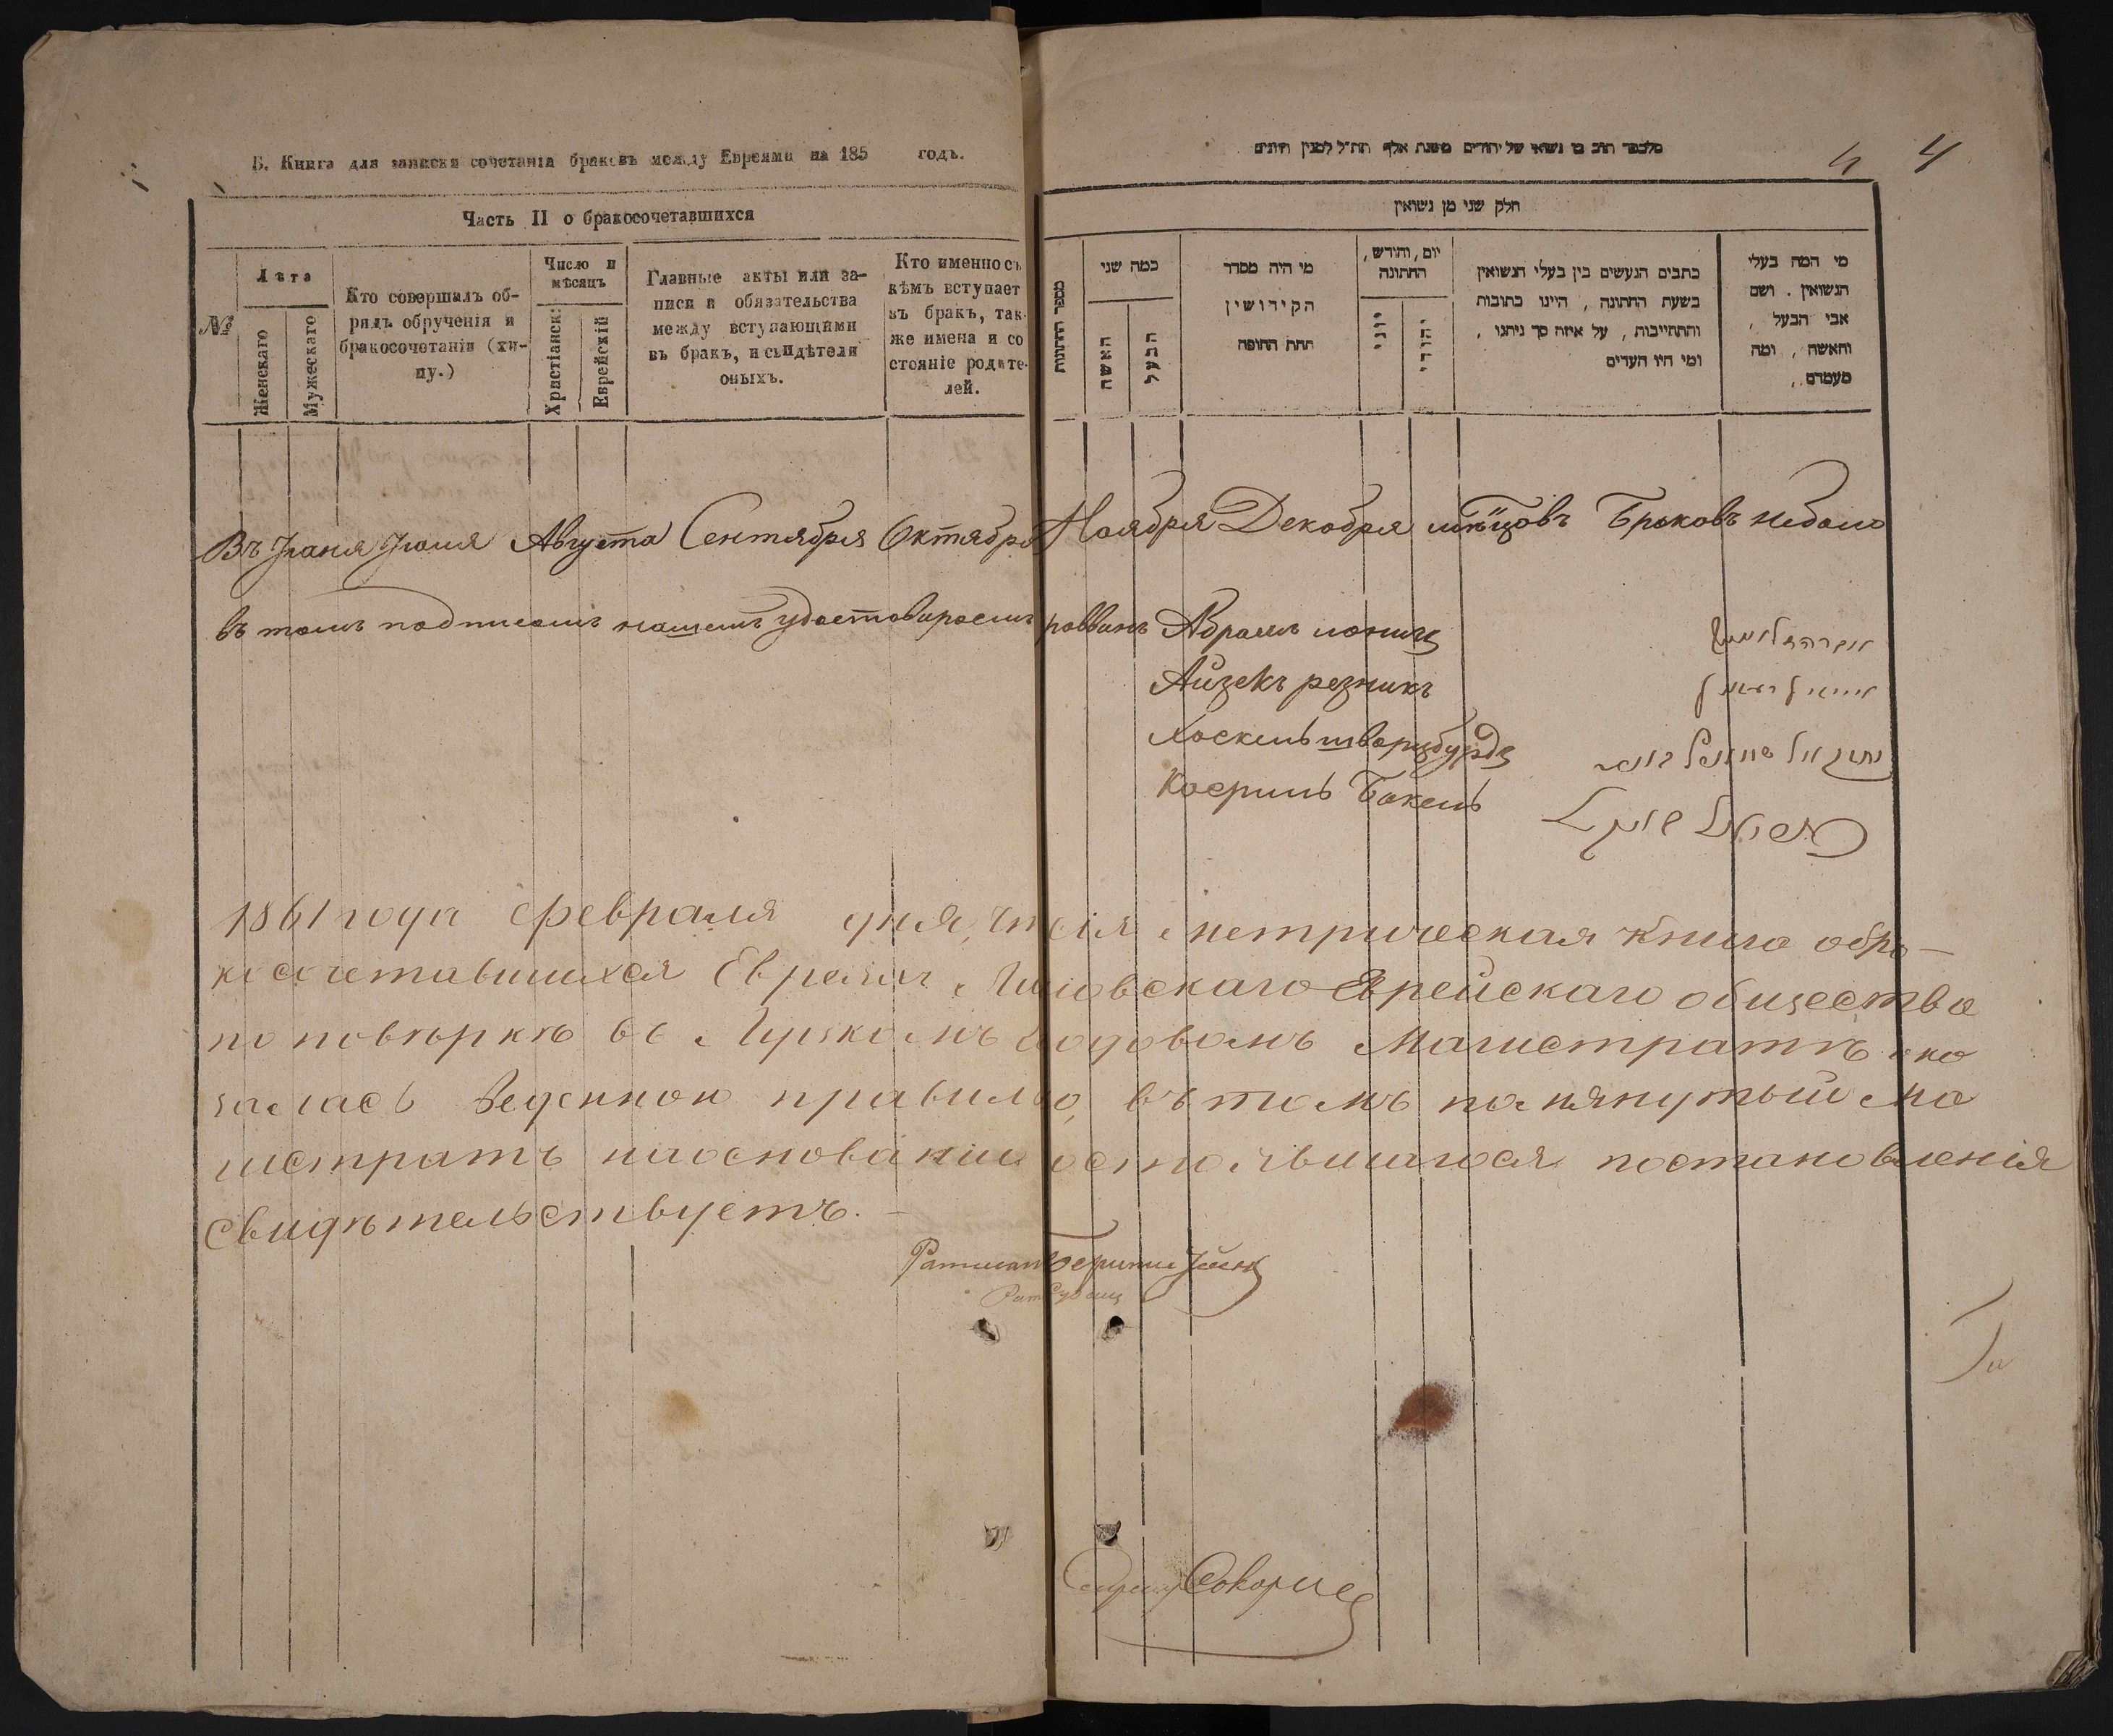 Б. Книга для записки сочетанія браковъ между Евреями на 185 годъ.
Часть II о бракосочетавшихся
№
Лѣта
Женскаго
Мужескаго
Кто совершалъ об-
рядъ обрученія и
бракосочетанія (хи-
пу.)
Число и
мѣсяцъ
Христіанск:
Еврейскій
Главные акты или за-
писи и обязательства
между вступающими
въ бракъ, и свидѣтели
оныхъ.
Кто именно съ
кѣмъ вступает
въ бракъ, так-
же имена и со
стояніе родите-
лей.
4 4
חלק שני מן נשואין
מספר החתונות
כמה שני
האשה
הבעל
מי היה מסדר
הקידושין
תחת החופה
יום, וחודש,
החתונה
יוני
יהודי
כתבים הנעשים בין בעלי הנשואין
בשעת החתונה, היינו כתובות
והתחייבות, על איזה סך ניתנו,
ומי היו העדים
מי המה בעלי
הנשואין. ושם
אבי הבעל,
והאשה, ומה
מעמדם,
Въ Іюня Іюля Августа Сентября Октября Ноября Декобря мѣсяцовъ Браковъ небыло
въ томъ подписомъ нашемъ удостовѣряемъ раввинъ Абрамъ
Айзекъ резникъ
Хаскель шварцбурдъ
Бокель
1861 года февраля дня, сія метрическая книга обра-
косочетавшихся Евреяхъ Еврейскаго общества
по повѣркѣ въ Луцкомъ Годовомъ Магистратѣ ока
залась веденною правильно, въ томъ помянутый Ма
гистратъ на основаніи состоявшагося постановленія
свидѣтельствуетъ.
Ратманъ